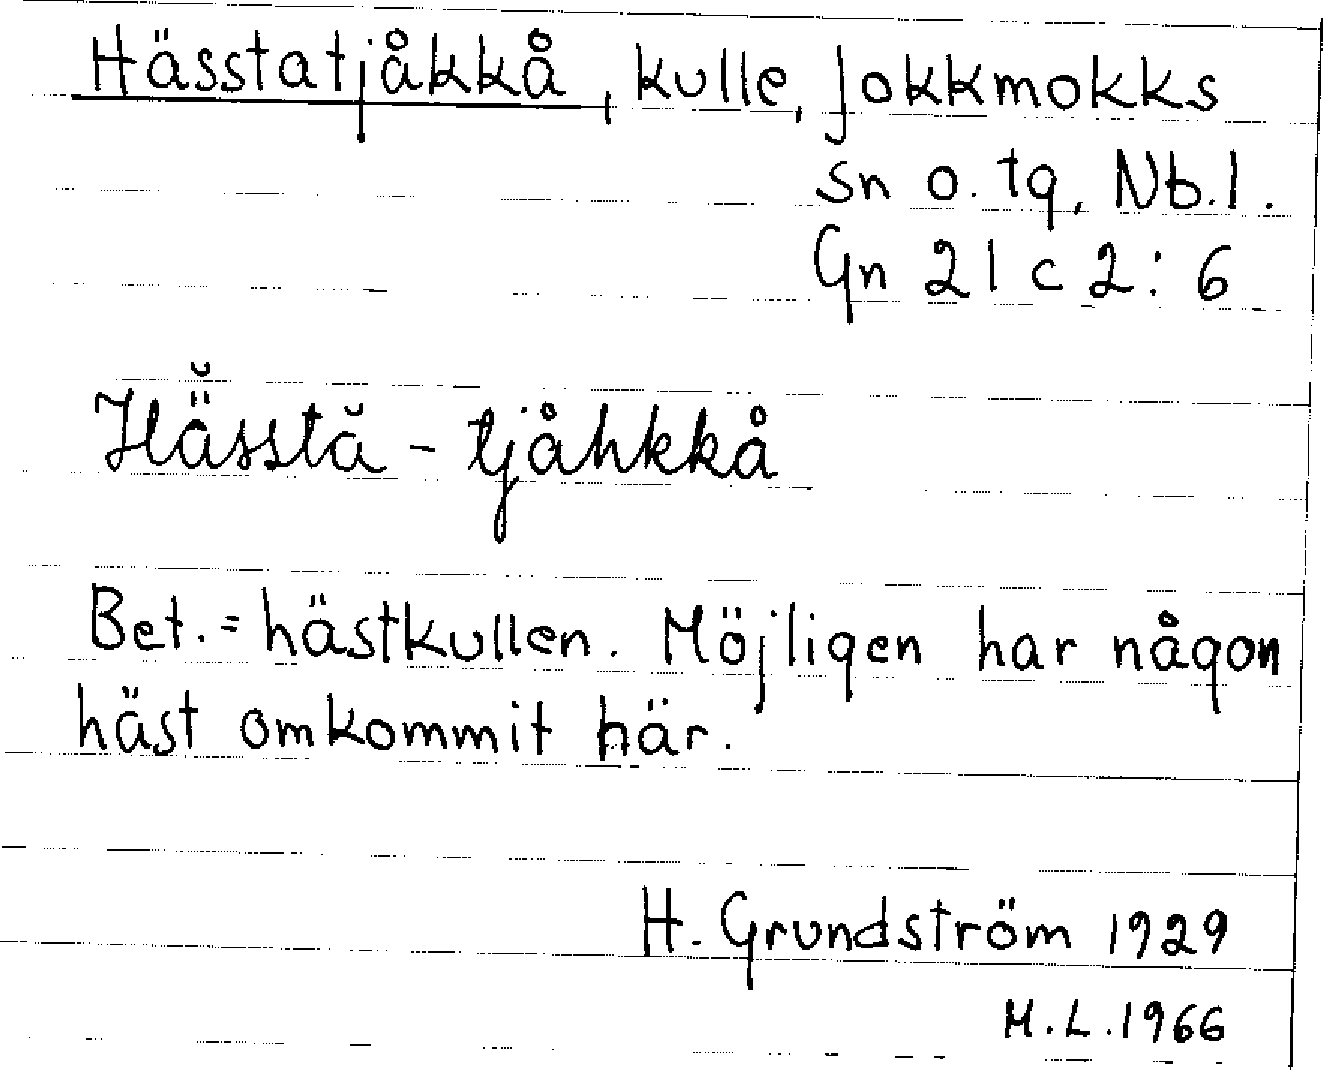 Hässtatjåkkå, kulle, Jokkmokks
sn o. tg, Nb.l.
Gn 21 c 2:6
Hä̆sstă-tjåhkkå
Bet.= hästkullen. Möjligen har någon
häst omkommit här.
H. Grundström 1929
M.L.1966